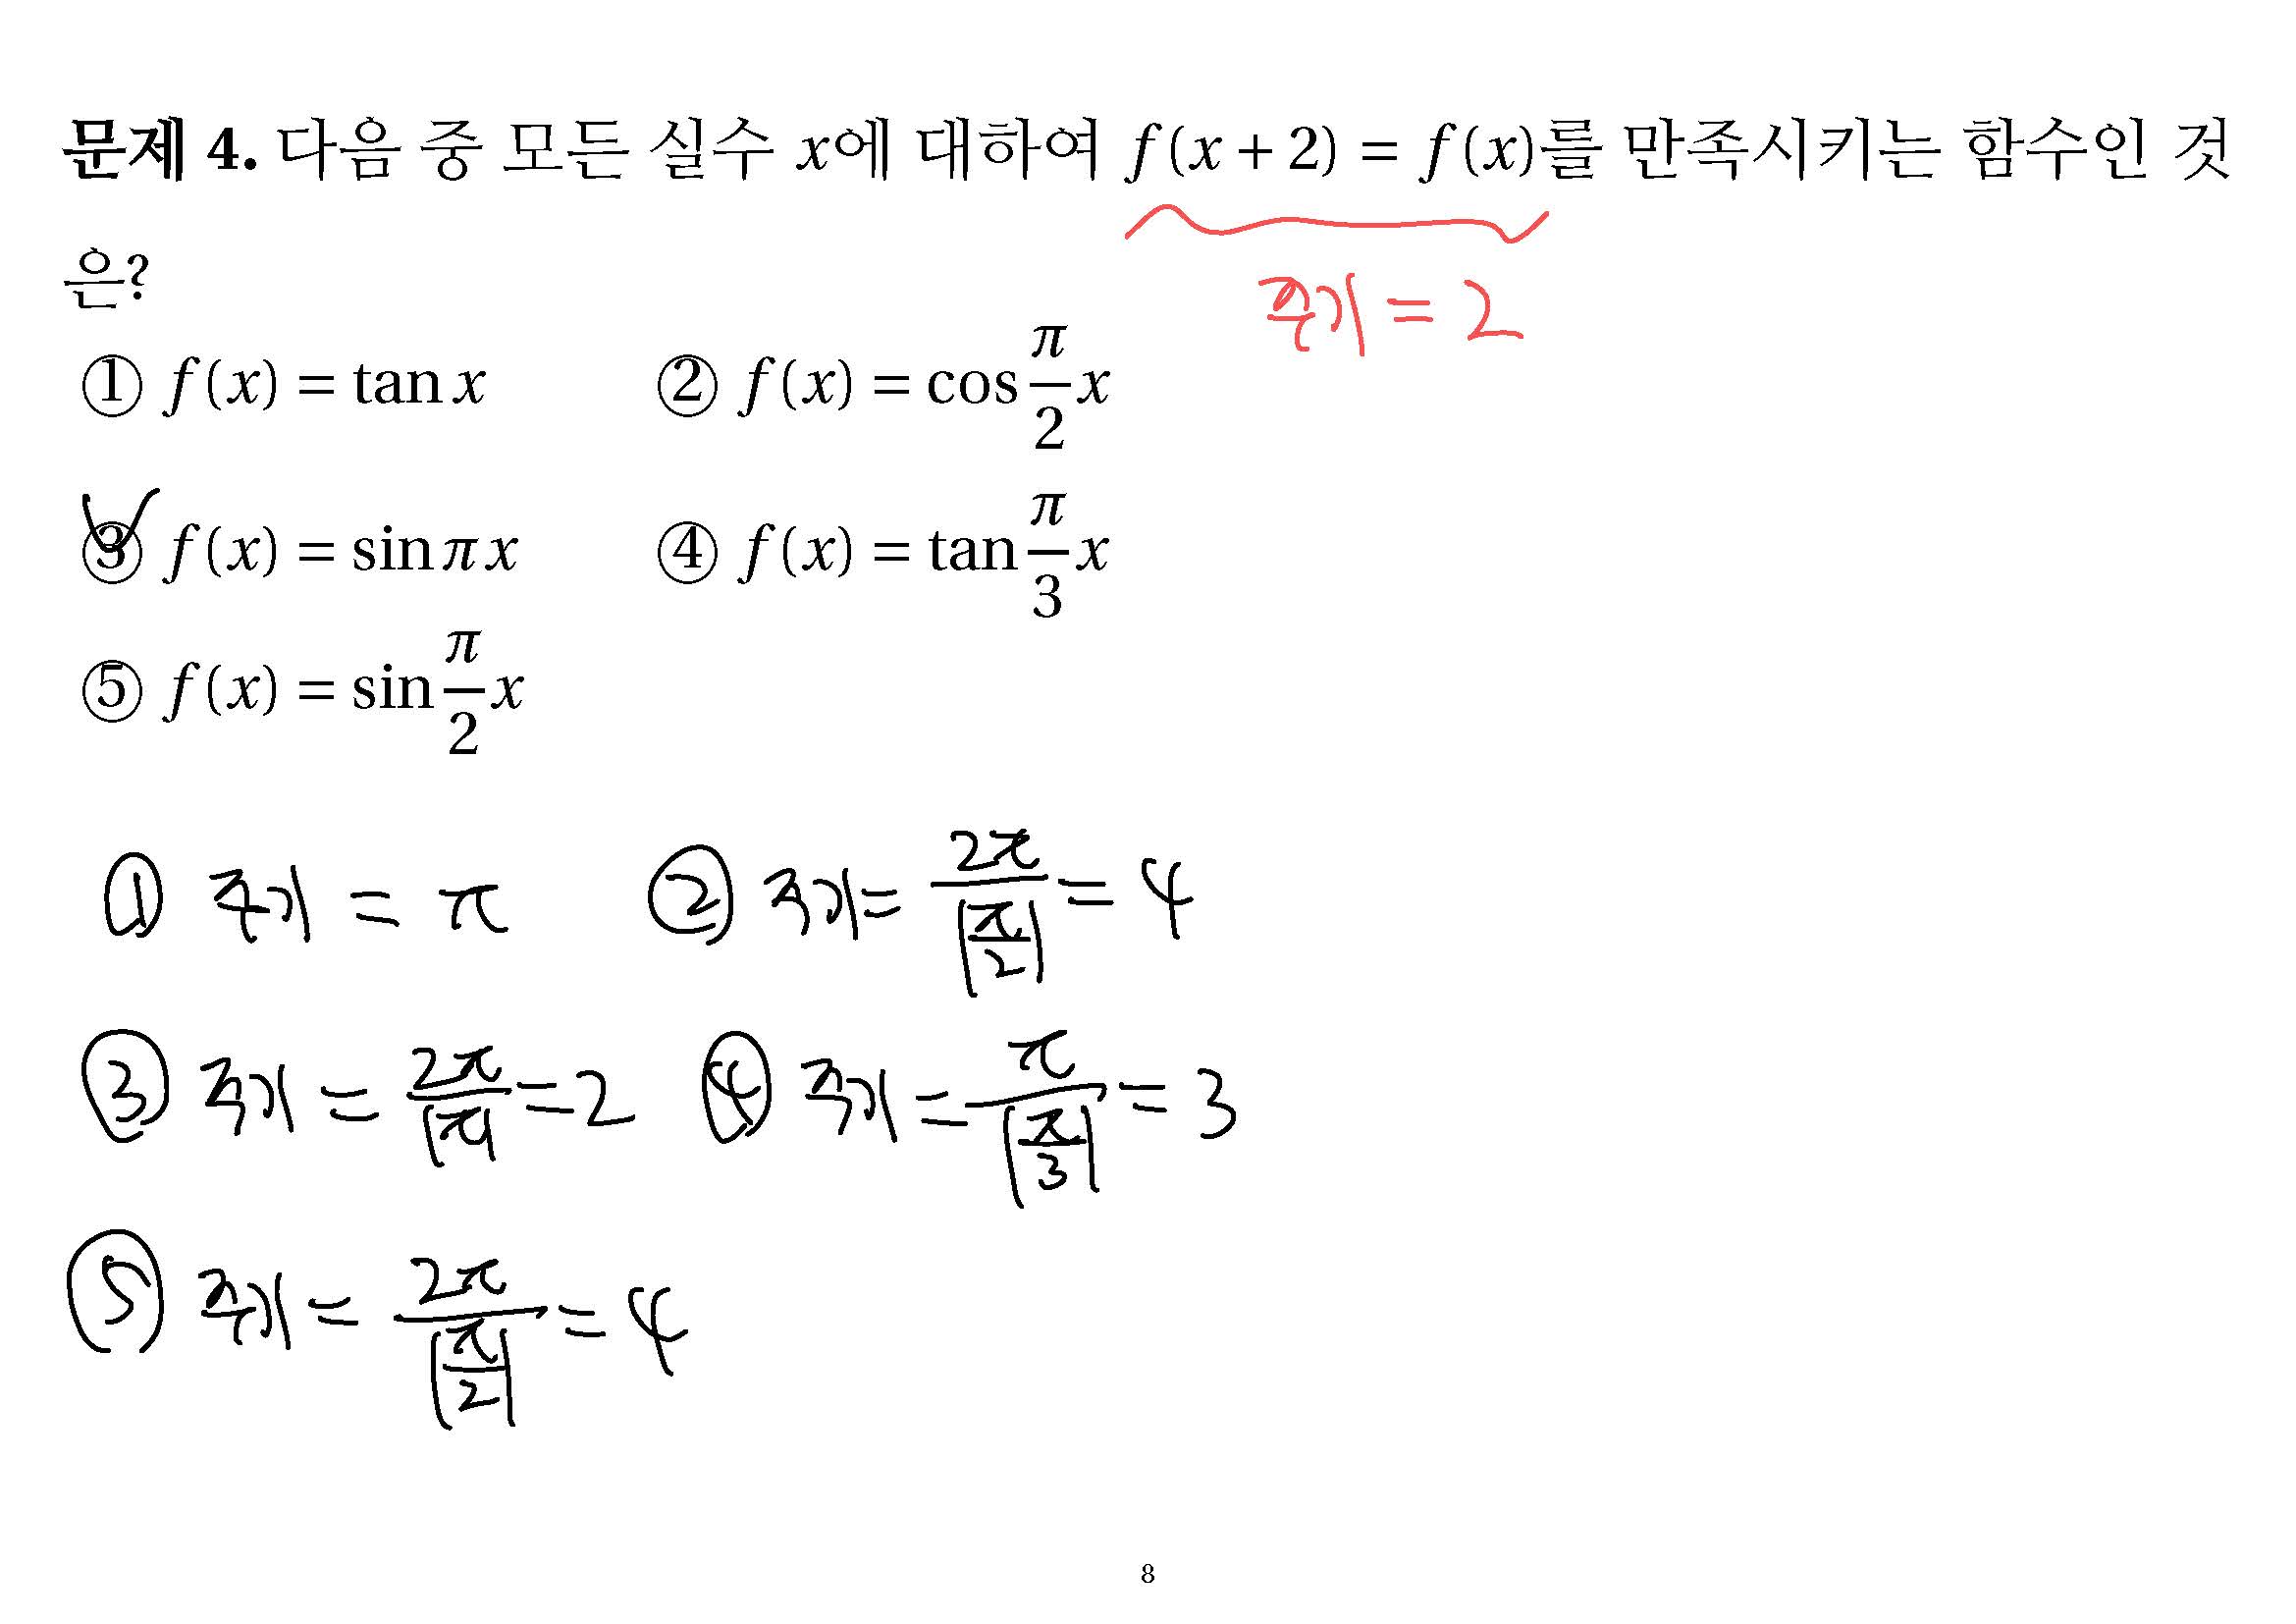 문제 4. 다음 중 모든 실수 x에 대하여 f(x+2) = f(x)를 만족시키는 함수인 것
은?
주기 = 2
① f(x) = tan x ② f(x) = cos π/2 x
③ f(x) = sin πx ④ f(x) = tan π/3 x
⑤ f(x) = sin π/2 x
① 주기 = π ② 주기 = 2π/|π/2| = 4
③ 주기 = 2π/|π| = 2 ④ 주기 = π/|π/3| = 3
⑤ 주기 = 2π/|π/2| = 4
8